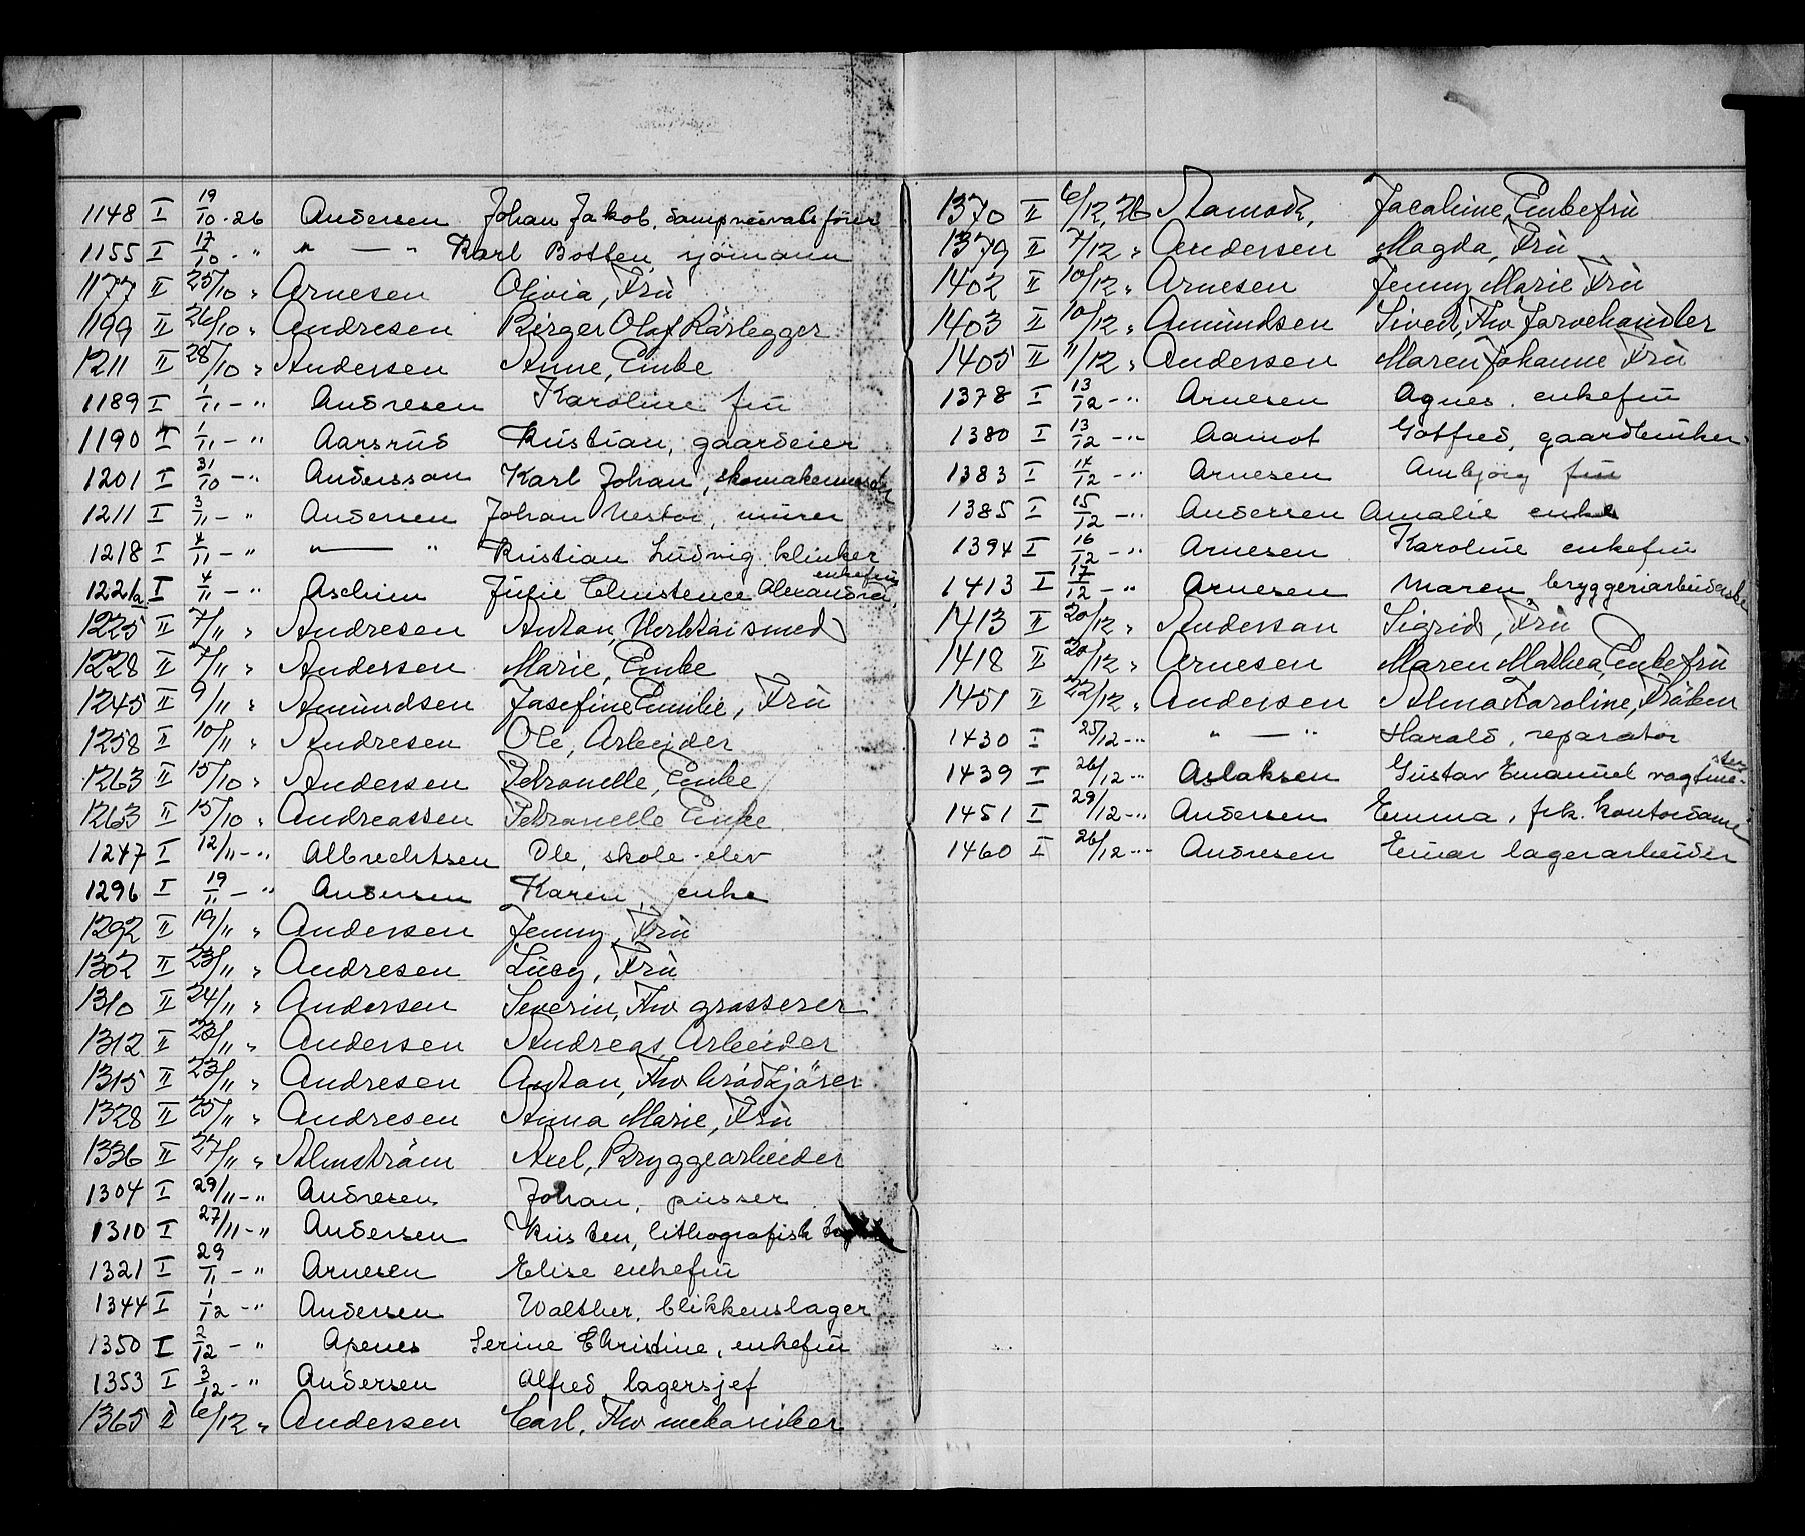 1148 I 19/10-26 Andersen Johan Jakob, dampveivalsfører
1155 I 17/10-" " — " Karl Botten, sjømann
1177 II 25/10 " Arnesen Olivia, Frü
1199 II 26/10 " Andresen Birger Olaf Rörlegger
1211 II 28/10 " Andersen Anne, Enke
1189 I 1/11-" Andresen Karoline frü
1190 I 1/11-" Aarsrüd Kristian, gaardeier
1201 I 31/10-" Andersson Karl Johan, skomakermester
1211 I 3/11-" Andersen Johan Nestor, mürer
1218 I 4/11-" " — " Kristian Lüdvig klinker
1221a I 4/11-" Aschim Jülie Christence Alexandra, enkefrü
1225 II 7/11 " Andresen Anton, Verktöismed
1228 II 7/11 " Andersen Marie, Enke
1245 II 9/11 " Amündsen Josefine Emilie, Frü
1258 I 10/11 " Andresen Ole, Arbeider
1263 II 15/10 " Andersen Petronelle, Enke
1263 II 15/10 " Andreassen Petronelle Enke
1247 I 12/11-" Albrechtsen Ole, skole-elev
1296 I 19/11-" Andersen Karen, enke
1292 II 19/11 " Andersen Jenny, Frü
1302 II 23/11 " Andresen Lücy, Frü
1310 II 24/11 " Andersen Severin, Fhv grosserer
1312 II 23/11 " Andersen Andreas Arbeider
1315 II 23/11 " Andresen Anton, Fhv brödkjörer
1328 II 25/11 " Andresen Anna Marie, Frü
1336 II 27/11 " Almström Axel, Bryggearbeider
1304 I 29/11-" Andresen Johan, püsser
1310 I 27/11-" Andersen Kristen, lithografisk
1321 I 29/11-" Arnesen Elise enkefrü
1344 I 1/12-" Andersen Walther, blikkenslager
1350 I 2/12-" Apenes Serine Christine, enkefrü
1353 I 3/12-" Andersen Alfred, lagersjef
1365 II 6/12 " Andersen Carl, Fhv mekaniker
1370 II 6/12, 26 Aamodt, Jacobine, Enkefrü
1379 II 7/12 " Andersen Magda, Frü
1402 II 10/12 " Arnesen Jenny Marie Frü
1403 II 10/12 " Amündsen Sived, Fhv Farvehandler
1405 II 11/12 " Andersen Maren Johanne Frü
1378 I 13/12-" Arnesen Agnes, enkefrü
1380 I 13/12-" Aamot Gotfred, gaardbruker
1383 I 14/12-" Arnesen Ambjørg frü
1385 I 15/12-" Andersen Amalie enke
1394 I 16/12-" Arnesen Karoline enkefrü
1413 I 17/12-" Arnesen Maren, bryggeriarbeiderske
1413 II 20/12 " Anderson Sigrid, Frü
1418 II 20/12 " Arnesen Maren Mathea, Enkefrü
1451 II 22/12 " Andersen Alma Karoline, Fröken
1430 I 25/12-" " — " Harald, reparatør
1439 I 26/12-" Aslaksen Güstav Emanuel vagtmester
1451 I 29/12-" Andersen Emma, frk. kontordame
1460 I 26/12-" Andresen Einar lagerarbeider